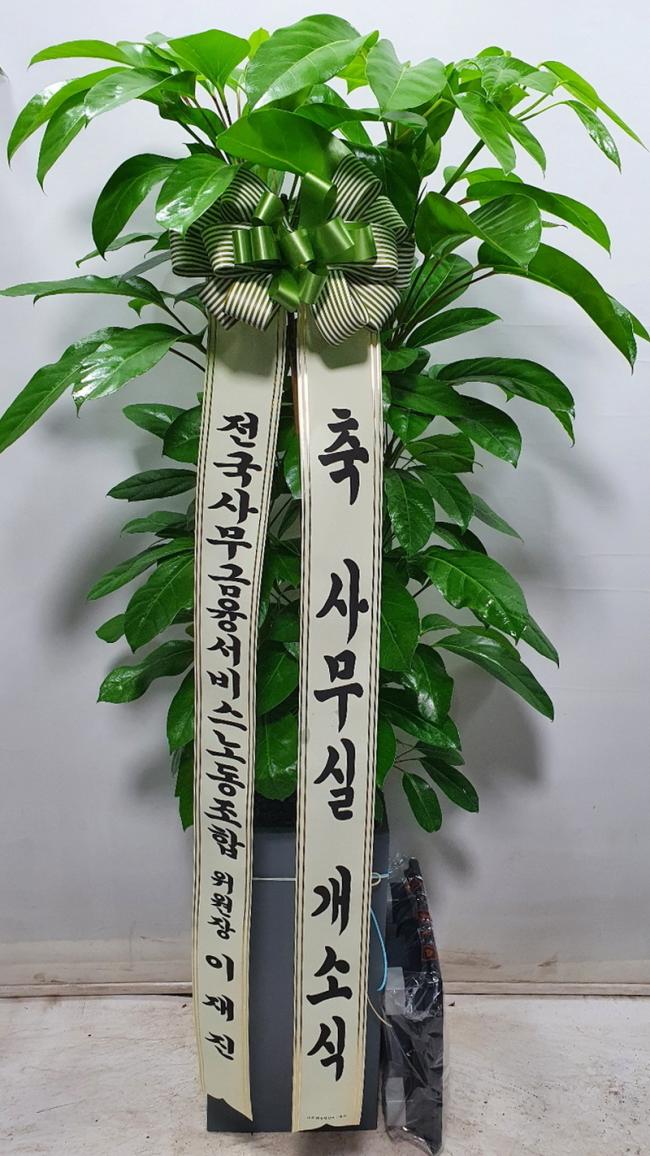 축 사무실 개소식
전국사무금융서비스노동조합 위원장 이재진